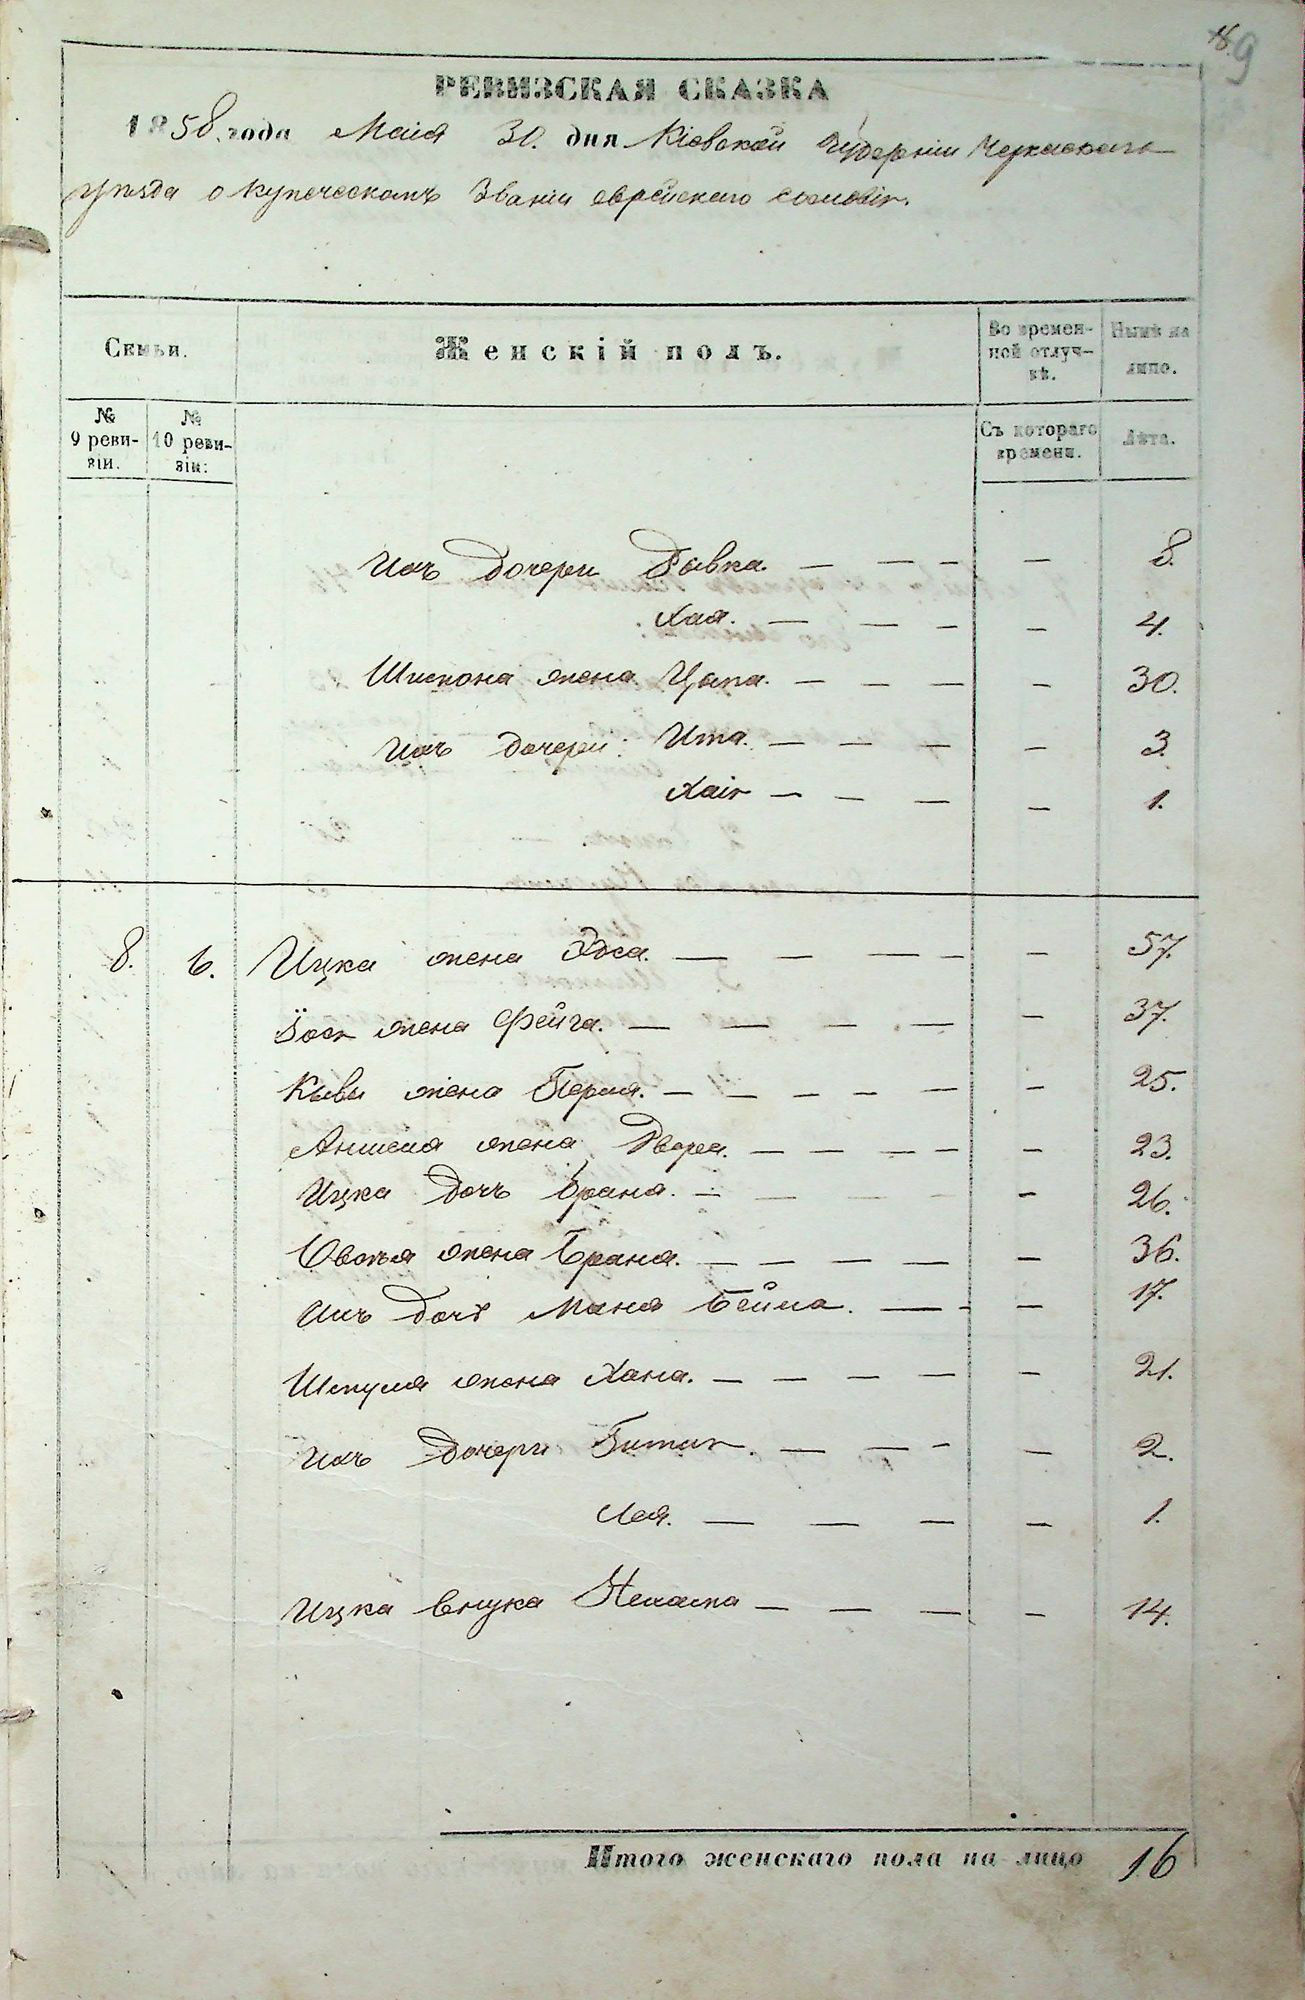 9
РЕВИЗСКАЯ СКАЗКА
1858 года Маія 30. дня Кіевской Губерніи Черкаскаго
уѣзда о купеческомъ Званіи еврейскаго сословія.
Семьи.
Женскій полъ.
Во времен-
ной отлуч-
кѣ.
Нынѣ на
лицо.
№
9 реви-
зіи.
№
10 реви-
зіи:
Съ котораго
времени.
Лѣта.
Ихъ дочери Ривка. — — — — 8.
Хая. — — — — — 4.
Шимона жена Цыпа. — — — — 30.
Ихъ дочери: Ита. — — — — 3.
Хаія — — — — 1.
8. 6. Ицка жена Эдса. — — — — — 57.
Іося жена Фейга. — — — — — 37.
Кивы жена Перля. — — — — — — 25.
Аншеля жена Двора. — — — — — 23.
Ицка дочь Брана. — — — — — 26.
Овсѣя жена Брана. — — — — — 36.
Ихъ дочь Маня Бейла. — — — 17.
Шмуля жена Хана. — — — — — 21.
Ихъ дочери Гитля. — — — — 2.
Лея. — — — — 1.
Ицка внука Нехама — — — — 14.
Итого женскаго пола на лицо 16